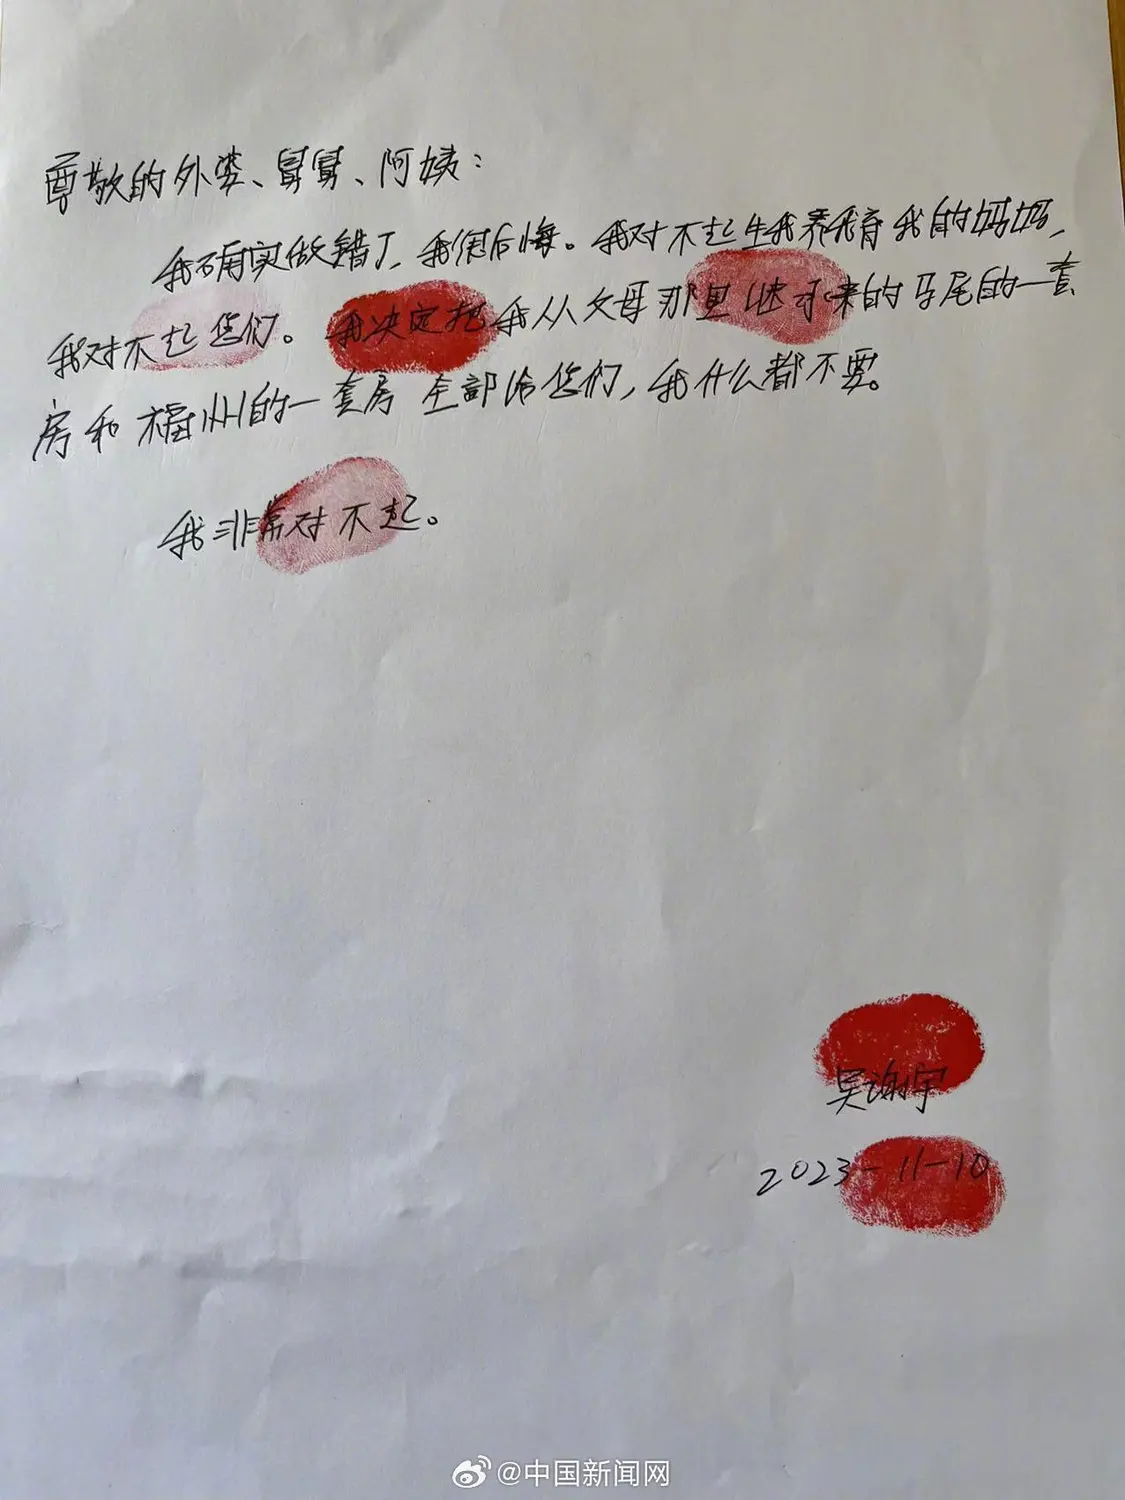 尊敬的外婆、舅舅、阿姨：
我确实做错了，我很后悔。我对不起生我养我育我的妈妈，
我对不起您们。我决定把我从父母那里继承来的马尾的一套
房和福州的一套房全部给您们，我什么都不要。
我非常对不起。
吴谢宇
2023-11-10
@中国新闻网